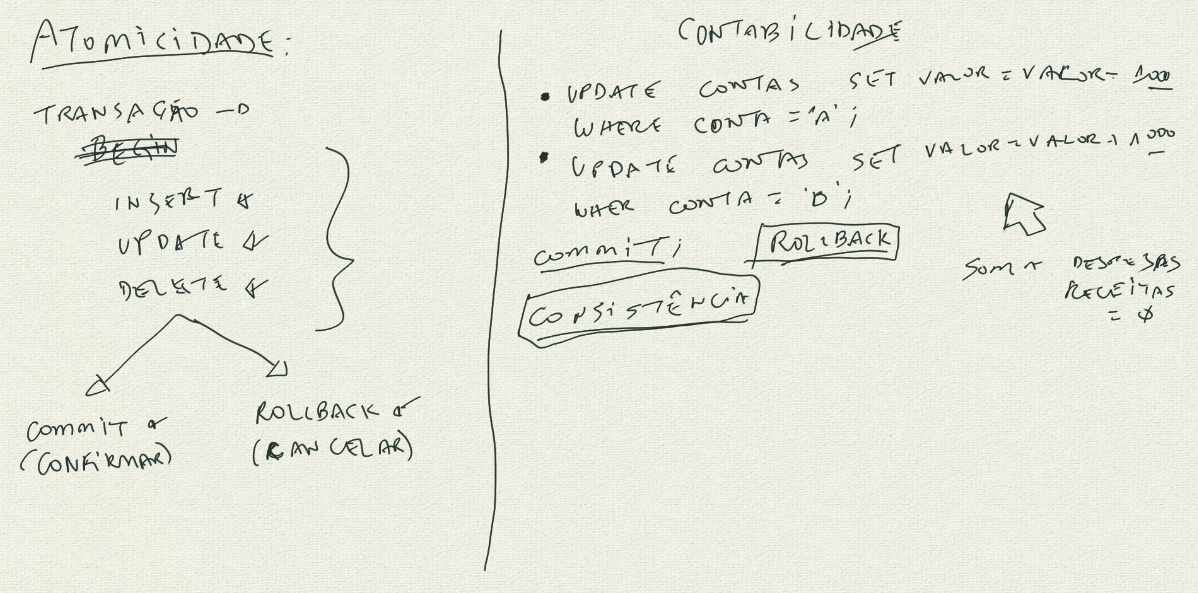 ATOMICIDADE:
TRANSAÇÃO →
BEGIN
INSERT
UPDATE
DELETE
COMMIT
(CONFIRMAR)
ROLLBACK
(CANCELAR)
CONTABILIDADE
• UPDATE CONTAS SET VALOR = VALOR - 1000
WHERE CONTA = 'A';
• UPDATE CONTAS SET VALOR = VALOR + 1000
WHER CONTA = 'B';
COMMIT; ROLLBACK
CONSISTÊNCIA
SOMA DESPESAS
RECEITAS
= 0